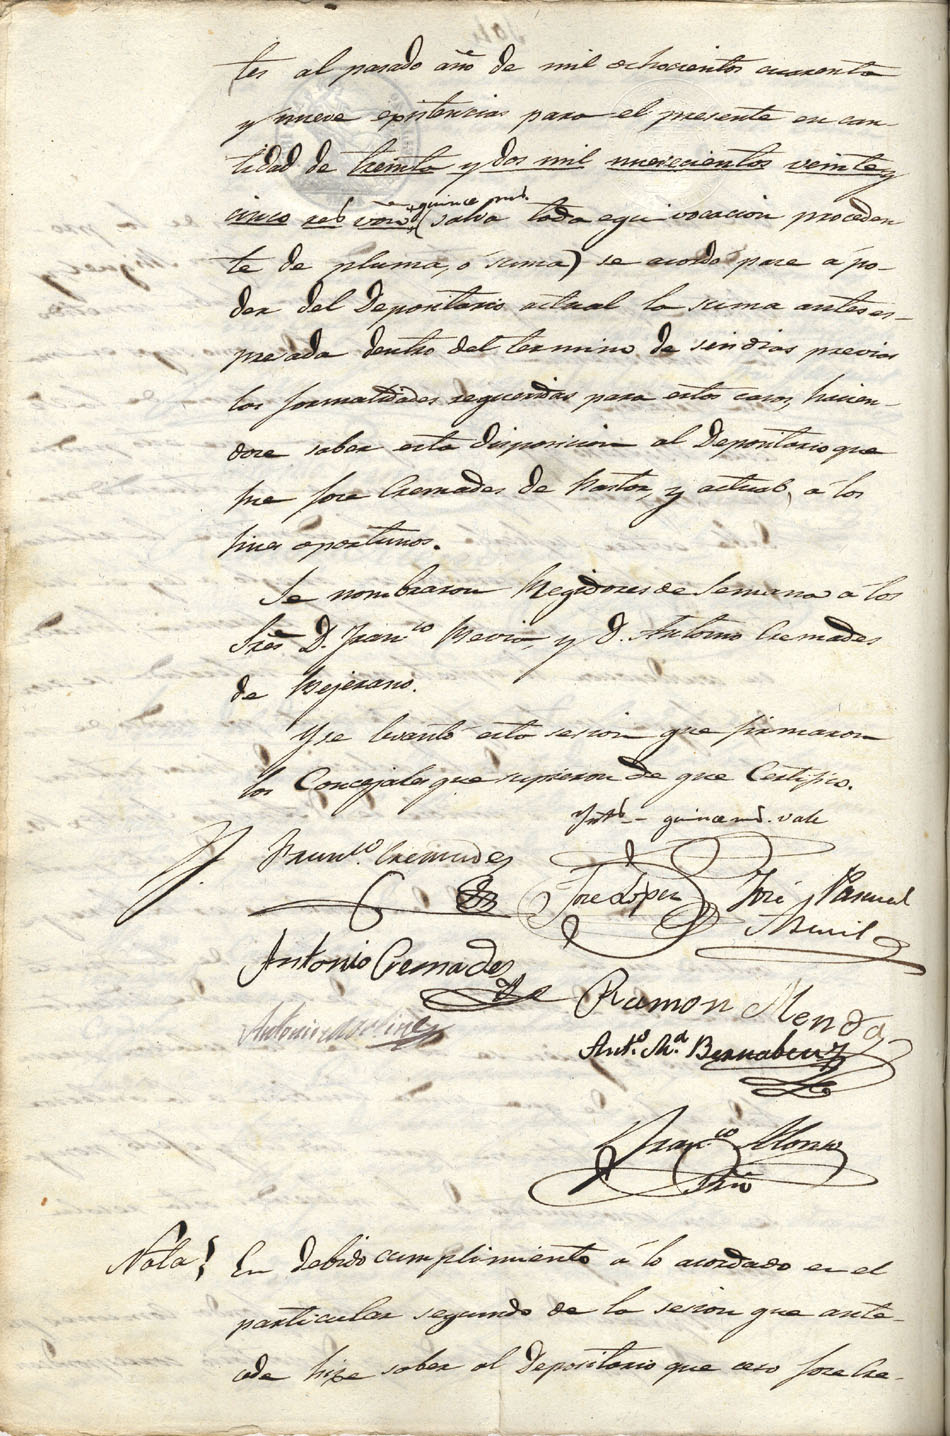 tes al pasado año de mil ochocientos cuarenta
y nueve existencias para el presente en can-
tidad de treinta y dos mil nuevecientos veinte y
cinco res von quince mrs. (salva toda equivocacion proceden
te de pluma, ó suma) se acordo pase á po-
der del Depositario actual la suma antes es-
presada dentro del termino de seis dias previas
las formalidades requeridas para estos casos, hacien-
dose saber esta disposicion al Depositario que
fue Jose Cremades de Pastor, y actual, á los
fines oportunos.
Se nombraron Regidores de Semana á los
Sres D. Franco Mevia, y D. Antonio Cremades
de Bejerano.
Y se levantó esta sesion que firmaron
los Concejales que supieron de que Certifico.
Intdo - quince mrs. vale
Franco. Cremades
Jose Lopez
José Pascual
Antonio Cremades
Ramon Mendo
Antonio Molines
Anto. Ma. Bernabeu
Franco Alonso
Srio
Nota. En debido cumplimiento á lo acordado en el
particular segundo de la sesion que ante-
cede hize saber al Depositario que ceso Jose Cre-